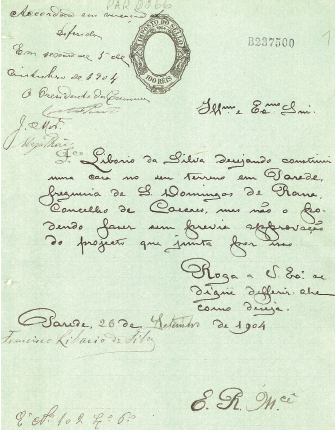 PAR D366
Accordão em vereação
Em sessão de 5 de
Outubro de 1904
O Presidente da Camara
IMPOSTO DO SELLO
100 RÉIS
B237500
1
Illmo e Exmo Snr.
Fco Liborio da Silva desejando construir
uma casa no seu terreno em Parede,
freguesia de S. Domingos de Rana,
Concelho de Cascaes, mas não o po-
dendo fazer sem previa approvação
do projecto que junta por isso
Roga a V. Exa. se
digne defferir-lhe
como deseja.
Parede, 26 de Setembro de 1904
Francisco Liborio da Silva
E. R. Mce